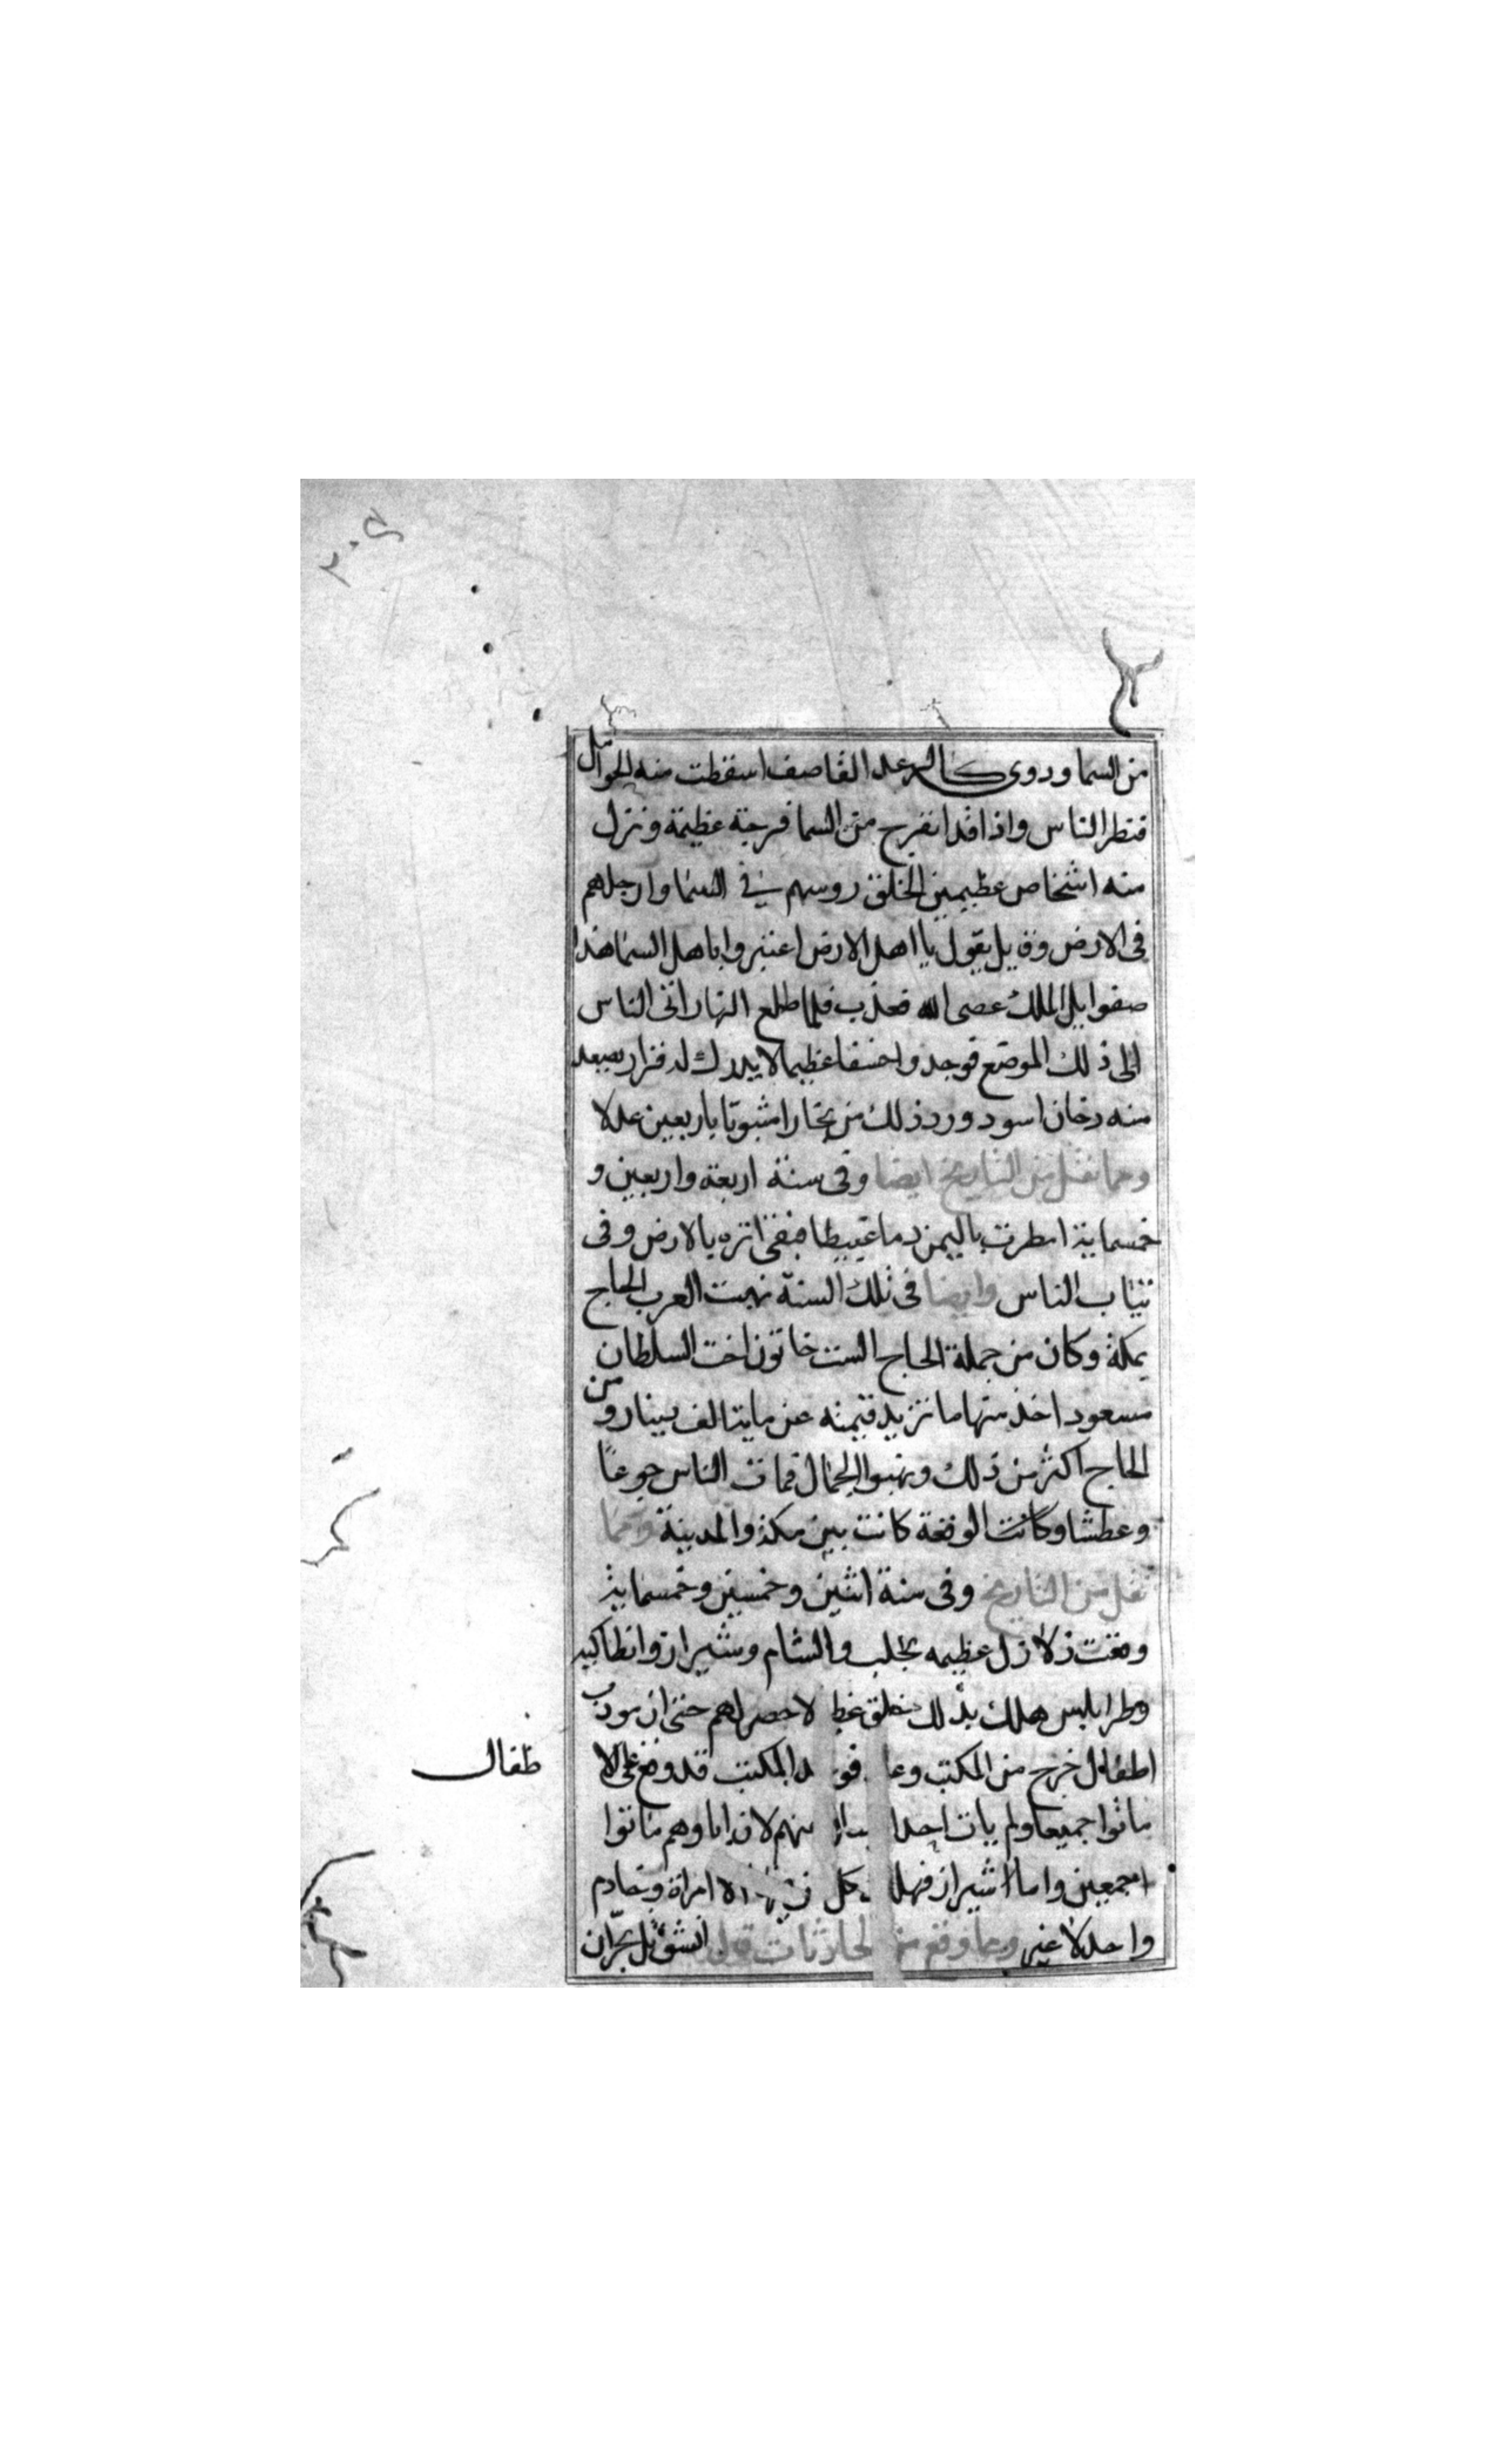 من السما ودوى كالرعد القاصف اسقطت منه الحوامل
فنظر الناس واذا قد انفرج من السما فرجة عظيمة ونزل
منه اشخاص عظيمين الخلق روسهم في السما وارجلهم
فى الارض وقايل يقول يا اهل الارض اعتبروا باهل السما هذا
صفوايل الملك عصى الله فعذب فلما طلع النهار اتى الناس
الى ذلك الموضع فوجدوا خسفا عظيما لا يدرك له قرار يصعد
منه دخان اسود وورد ذلك من بخارا مثبوتا باربعين عدلا
ومما نقل من التاريخ ايضا وفى سنة اربعة واربعين و
خمسماية امطرت باليمن دما عبيطا فبقى اثره بالارض وفى
ثياب الناس وايضا فى تلك السنة نهبت العرب الحاج
بمكة وكان من جملة الحاج الست خاتون اخت السلطان
مسعود اخذ منها ما تزيد قيمته عن مايتا الف دينار ومن
الحاج اكثر من ذلك ونهبوا الجمال فمات الناس جوعا
وعطشا وكانت الوقعة كانت بين مكة والمدينة ومما
نقل من التاريخ وفى سنة اثنين وخمسين وخمسماية
وقعت زلازل عظيمه بحلب والشام وشيراز وانطاكيه
وطرابلس هلك بذلك خلق لا حصر لهم حتى ان مودب
اطفال خرج من المكتب وعا فو المكتب قد وقع على الا
طفال
ماتوا جميعا ولم يات احدا منهم لان اباوهم ماتوا
اجمعين واما شيراز فهلك كل من امراة وخادم
واحد لا غير ومما وقع من الحادثات قيل انشق تل بحران
٣٠٤